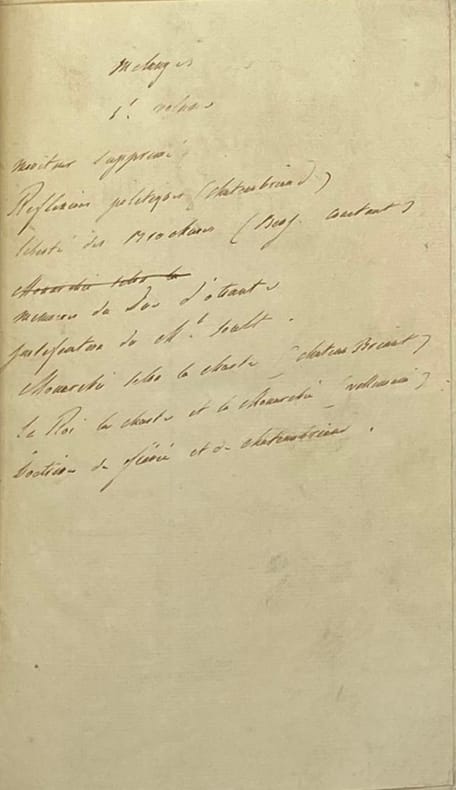 melanges
1r volume
moniteur supprimé
Reflexions politiques (chateaubriand)
liberté des Brochures (Benj. constant)
Monarchie selon la
memoires du Duc d'otrante
justification du Mal soult.
Monarchie selon la charte (chateauBriant)
Le Roi la charte et la Monarchie (villemain)
Doctrine de fiévée et de chateaubriand.